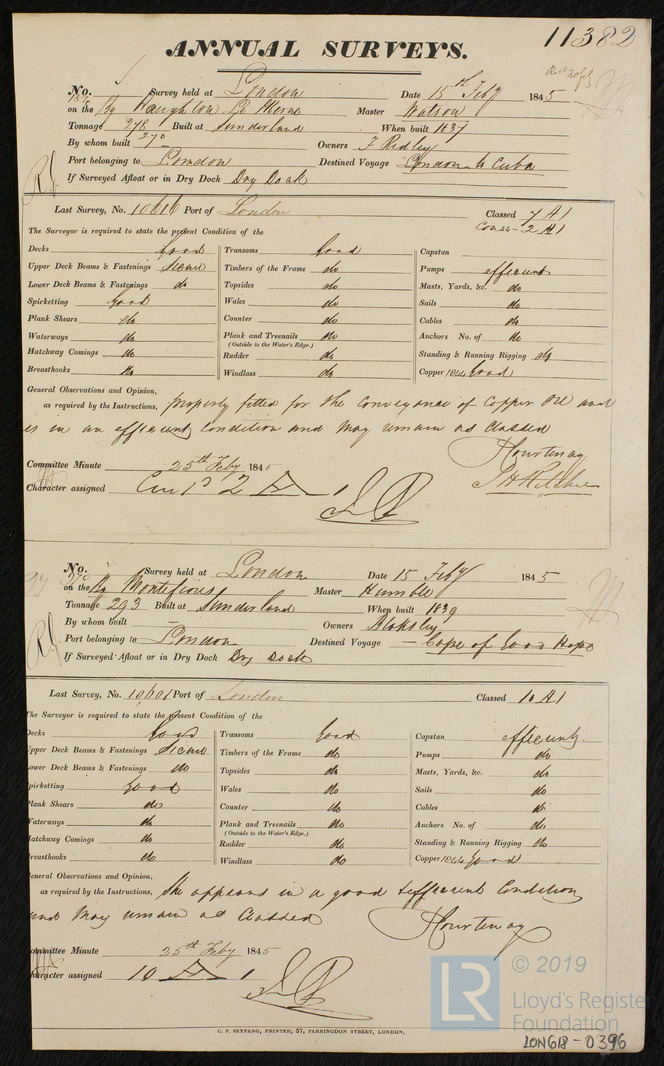 11382
ANNUAL SURVEYS.
No. Survey held at London Date 15th Feby 1845
on the Bg Master Watson
Tonnage 278 Built at Sunderland When built 1837
By whom built 270 Owners F Ridley
Port belonging to London Destined Voyage London to Cuba
If Surveyed Afloat or in Dry Dock Dry Dock
Last Survey, No. 10616 Port of London Classed 7 A1
Con 44- 2 A1
The Surveyor is required to state the present Condition of the
Decks Good Transoms Good Capstan
Upper Deck Beams & Fastenings Secure Timbers of the Frame do Pumps efficient
Lower Deck Beams & Fastenings do Topsides do Masts, Yards, &c. do
Spirketting Good Wales do Sails do
Plank Shears do Counter do Cables do
Waterways do Plank and Treenails do Anchors No. of do
(Outside to the Water's Edge.)
Hatchway Comings do Rudder do Standing & Running Rigging do
Breasthooks do Windlass do Copper 1844 Good
General Observations and Opinion,
as required by the Instructions, properly fitted for the Conveyance of Copper Ore and
is in an efficient Condition and may remain as Classed
Courtenay
Committee Minute 25th Feby 1845
Character assigned Con 2 A 1
No. Survey held at London Date 15 Feby 1845
on the Bg Montefiore Master Humble
Tonnage 293 Built at Sunderland When built 1839
By whom built — Owners Bloksley
Port belonging to London Destined Voyage — Cape of Good Hope
If Surveyed Afloat or in Dry Dock Dry Dock
Last Survey, No. 10601 Port of London Classed 10 A1
The Surveyor is required to state the present Condition of the
Decks Good Transoms Good Capstan efficient
Upper Deck Beams & Fastenings Secure Timbers of the Frame do Pumps do
Lower Deck Beams & Fastenings do Topsides do Masts, Yards, &c. do
Spirketting Good Wales do Sails do
Plank Shears do Counter do Cables do
Waterways do Plank and Treenails do Anchors No. of do
(Outside to the Water's Edge.)
Hatchway Comings do Rudder do Standing & Running Rigging do
Breasthooks do Windlass do Copper 1844 Good
General Observations and Opinion,
as required by the Instructions, She appears in a good & efficient Condition
and may remain as Classed Courtenay
Committee Minute 25th Feby 1845
Character assigned 10 A 1
C. F. SEYFANG, PRINTER, 57, FARRINGDON STREET, LONDON.
LR © 2019
Lloyd's Register
Foundation
LON618-0396